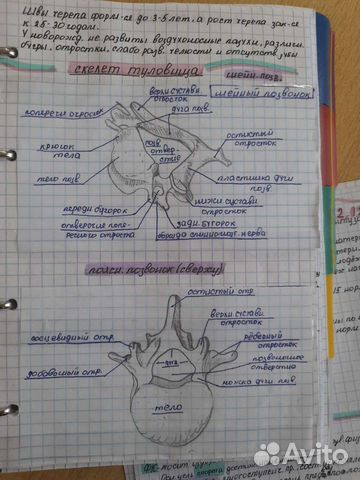 Швы черепа форм-ся до 3-5 лет, а рост черепа зак-ся
к 25-30 годам.
У новорожд. не развиты воздухоносные пазухи, различн.
бугры, отростки, слабо разв. челюсти и отсутств. зубы
скелет туловища
шейн. позв.
шейный позвонок
верхн суставн.
отросток
дуга позв.
попереч отросток
остистый
отросток
крючок
тела
позв.
отвер-
стие
тело позв.
пластинка дуги
позв.
передн бугорок
нижн сустави
отросток
отверстие попе-
речного отростка
задн. бугорок
борозда спинномозг. нерва
поясн. позвонок (сверху)
остистый отр.
верхн сустави.
отросток
сосцевидный отр.
рёберный
отросток
дуга
позвоночное
отверстие
добавочный отр.
ножка дуги позв.
тело
Avito